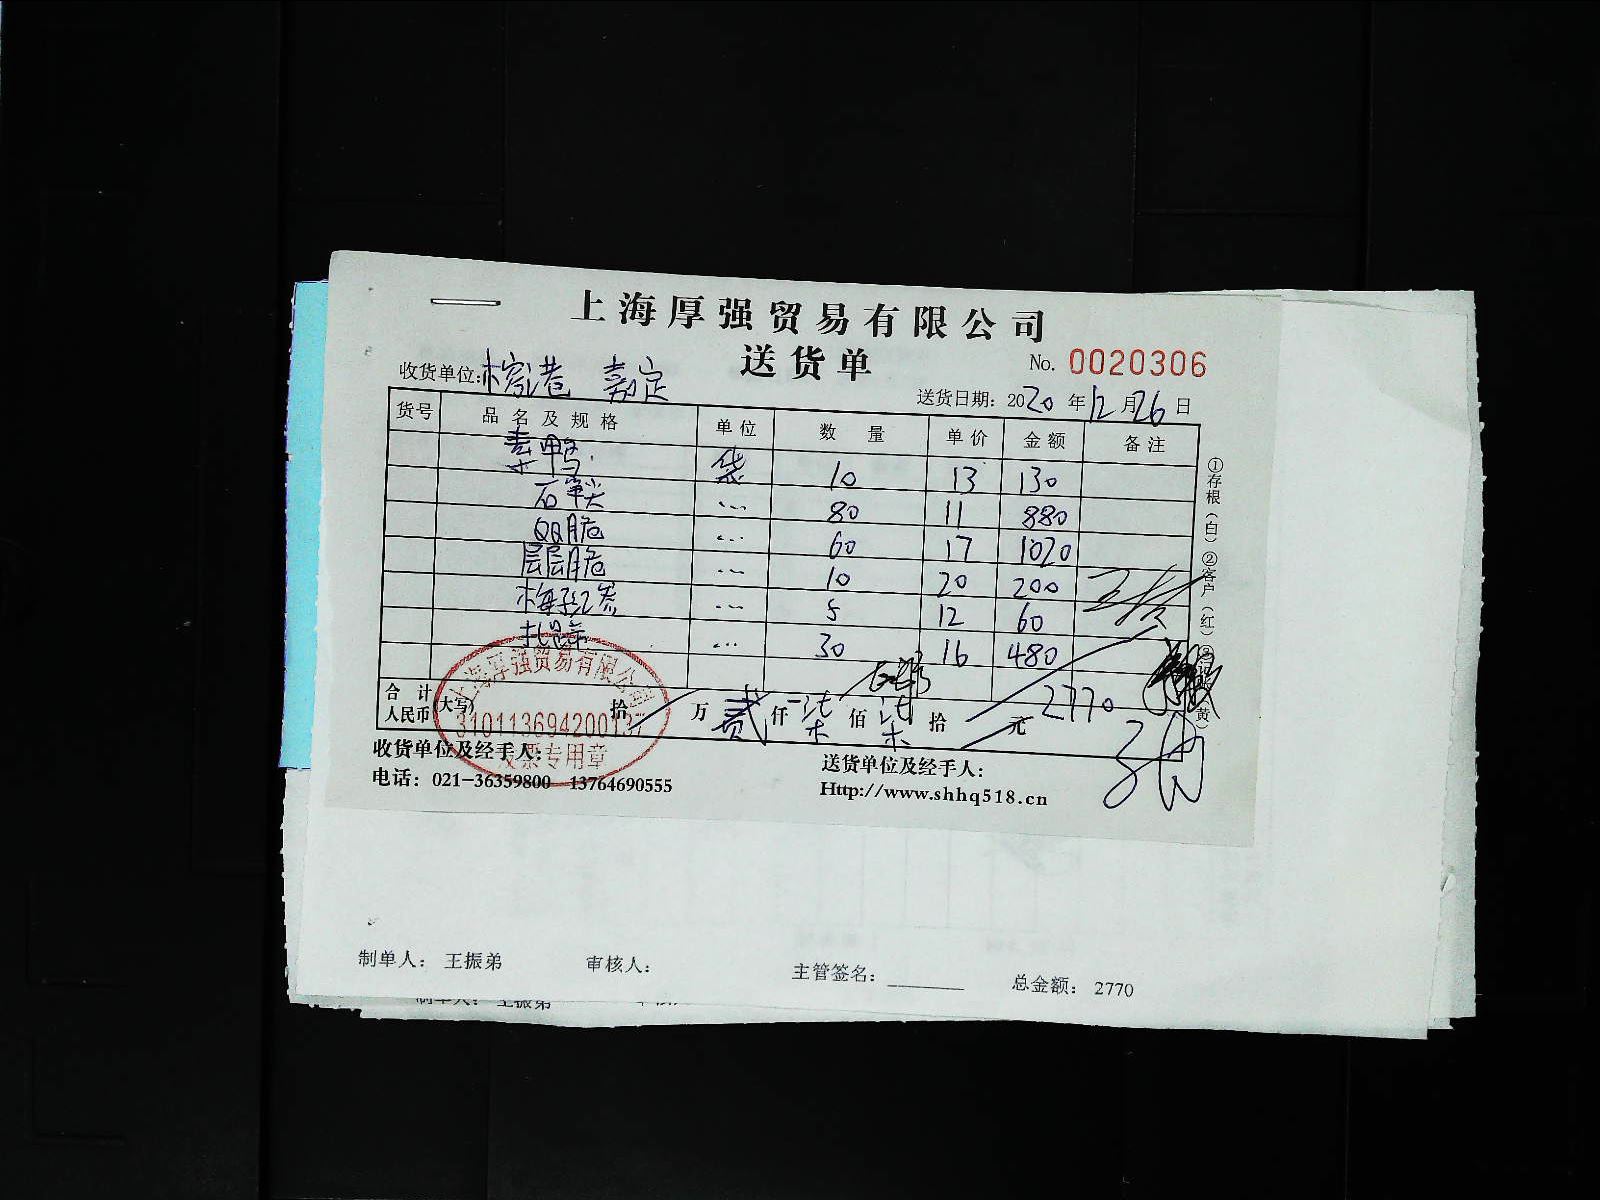 上海厚强贸易有限公司
送货单
No. 0020306
收货单位: 榕港 嘉定
送货日期: 2020 年 12 月 26 日
货号 品名及规格 单位 数量 单价 金额 备注
素鸭 袋 10 13 130
石笋尖 ... 80 11 880
QQ脆 ... 60 17 1020
层层脆 ... 10 20 200
... 5 12 60
... 30 16 480
合计人民币(大写) 拾 万 贰 仟 柒 佰 柒 拾 元 2770
上海厚强贸易有限公司
310113694200137
发票专用章
收货单位及经手人:
送货单位及经手人:
电话: 021-36359800 13764690555
Http://www.shhq518.cn
①存根(白)②客户(红)③记账(黄)
制单人: 王振弟 审核人: 主管签名: 总金额: 2770
制单人: 王振弟